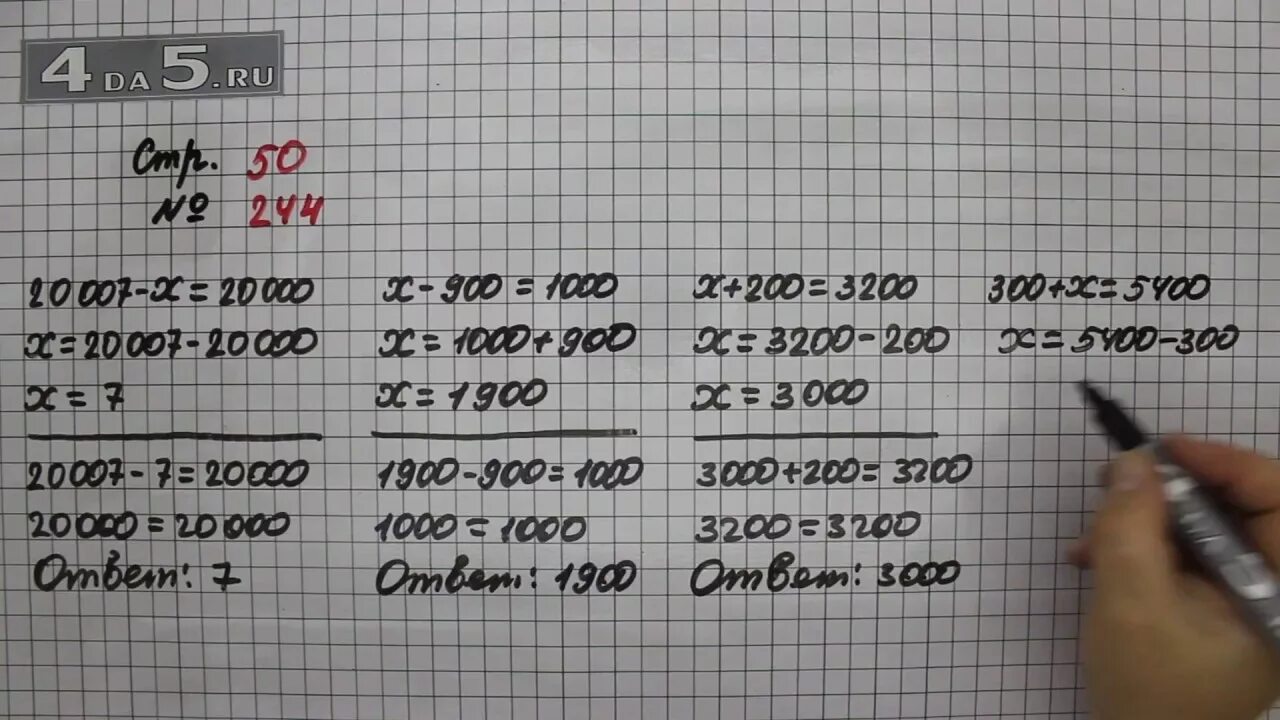 4 DA 5.RU
Стр. 50
№ 244
20 007-x=20 000
x=20 007-20 000
x=7
20 007-7=20 000
20 000=20 000
Ответ: 7
x-900=1000
x=1000+900
x=1900
1900-900=1000
1000=1000
Ответ: 1900
x+200=3200
x=3200-200
x=3000
3000+200=3200
3200=3200
Ответ: 3000
300+x=5400
x=5400-300